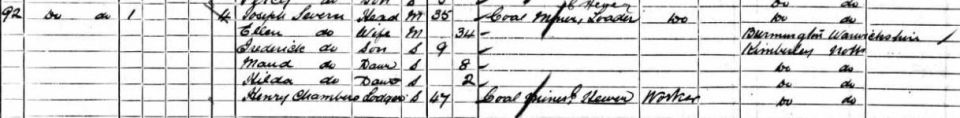 92 Do do 1 4 Joseph Severn Head M 35 Coal Miner, Loader Do Do do
Ellen do Wife M 34 Burmington Warwickshire
Frederick do Son S 9 Kimberley Notts
Maud do Daur S 8 Do do
Hilda do Daur S 2 Do do
Henry Chambers Lodger S 47 Coal Miner Hewer Worker Do do